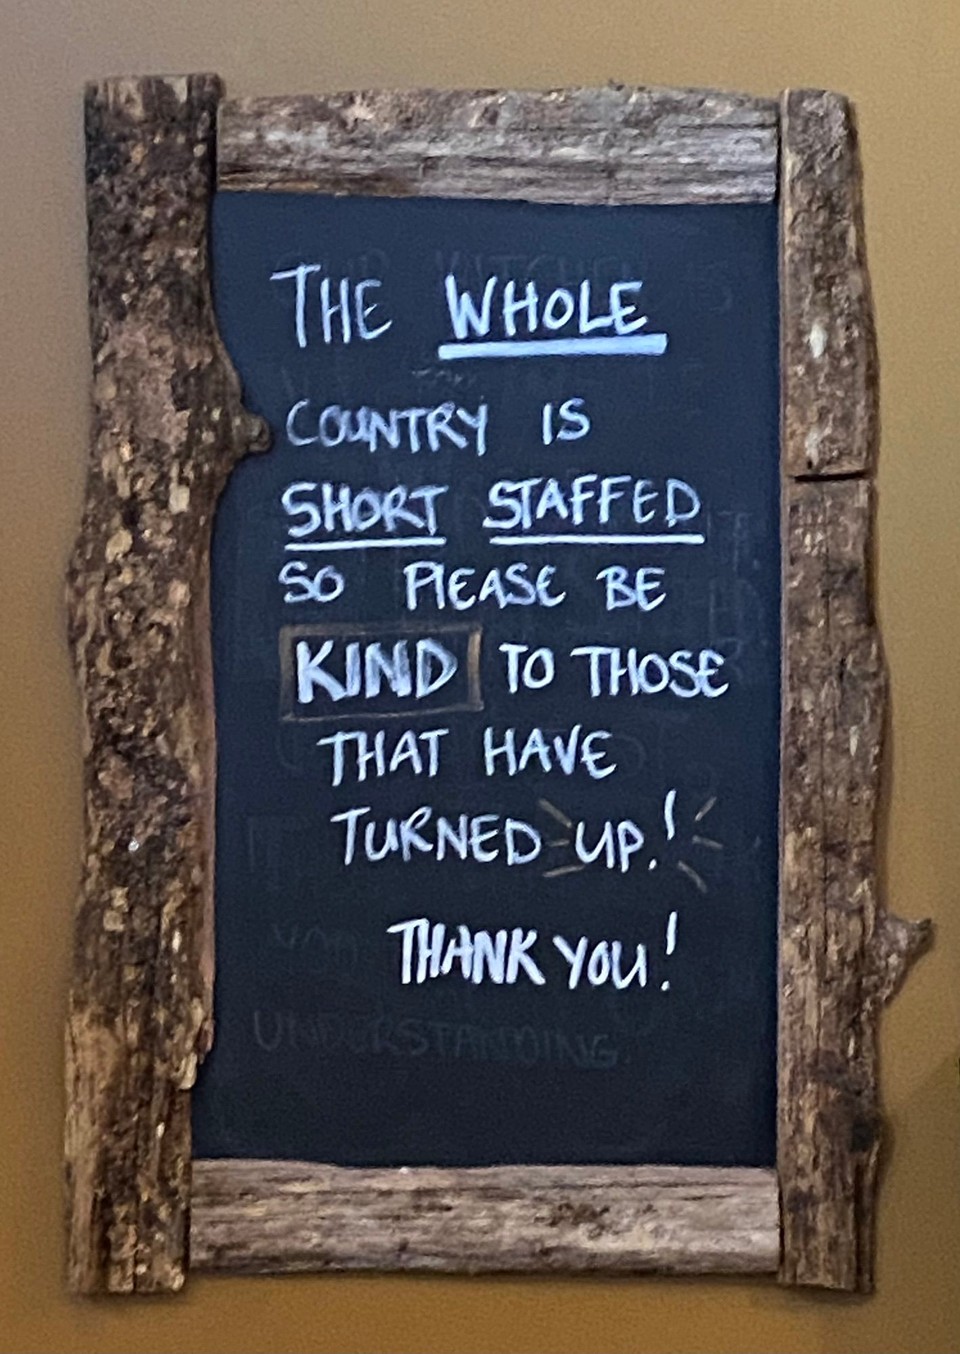 THE WHOLE
COUNTRY IS
SHORT STAFFED
SO PLEASE BE
KIND TO THOSE
THAT HAVE
TURNED UP!
THANK YOU!
UNDERSTANDING.